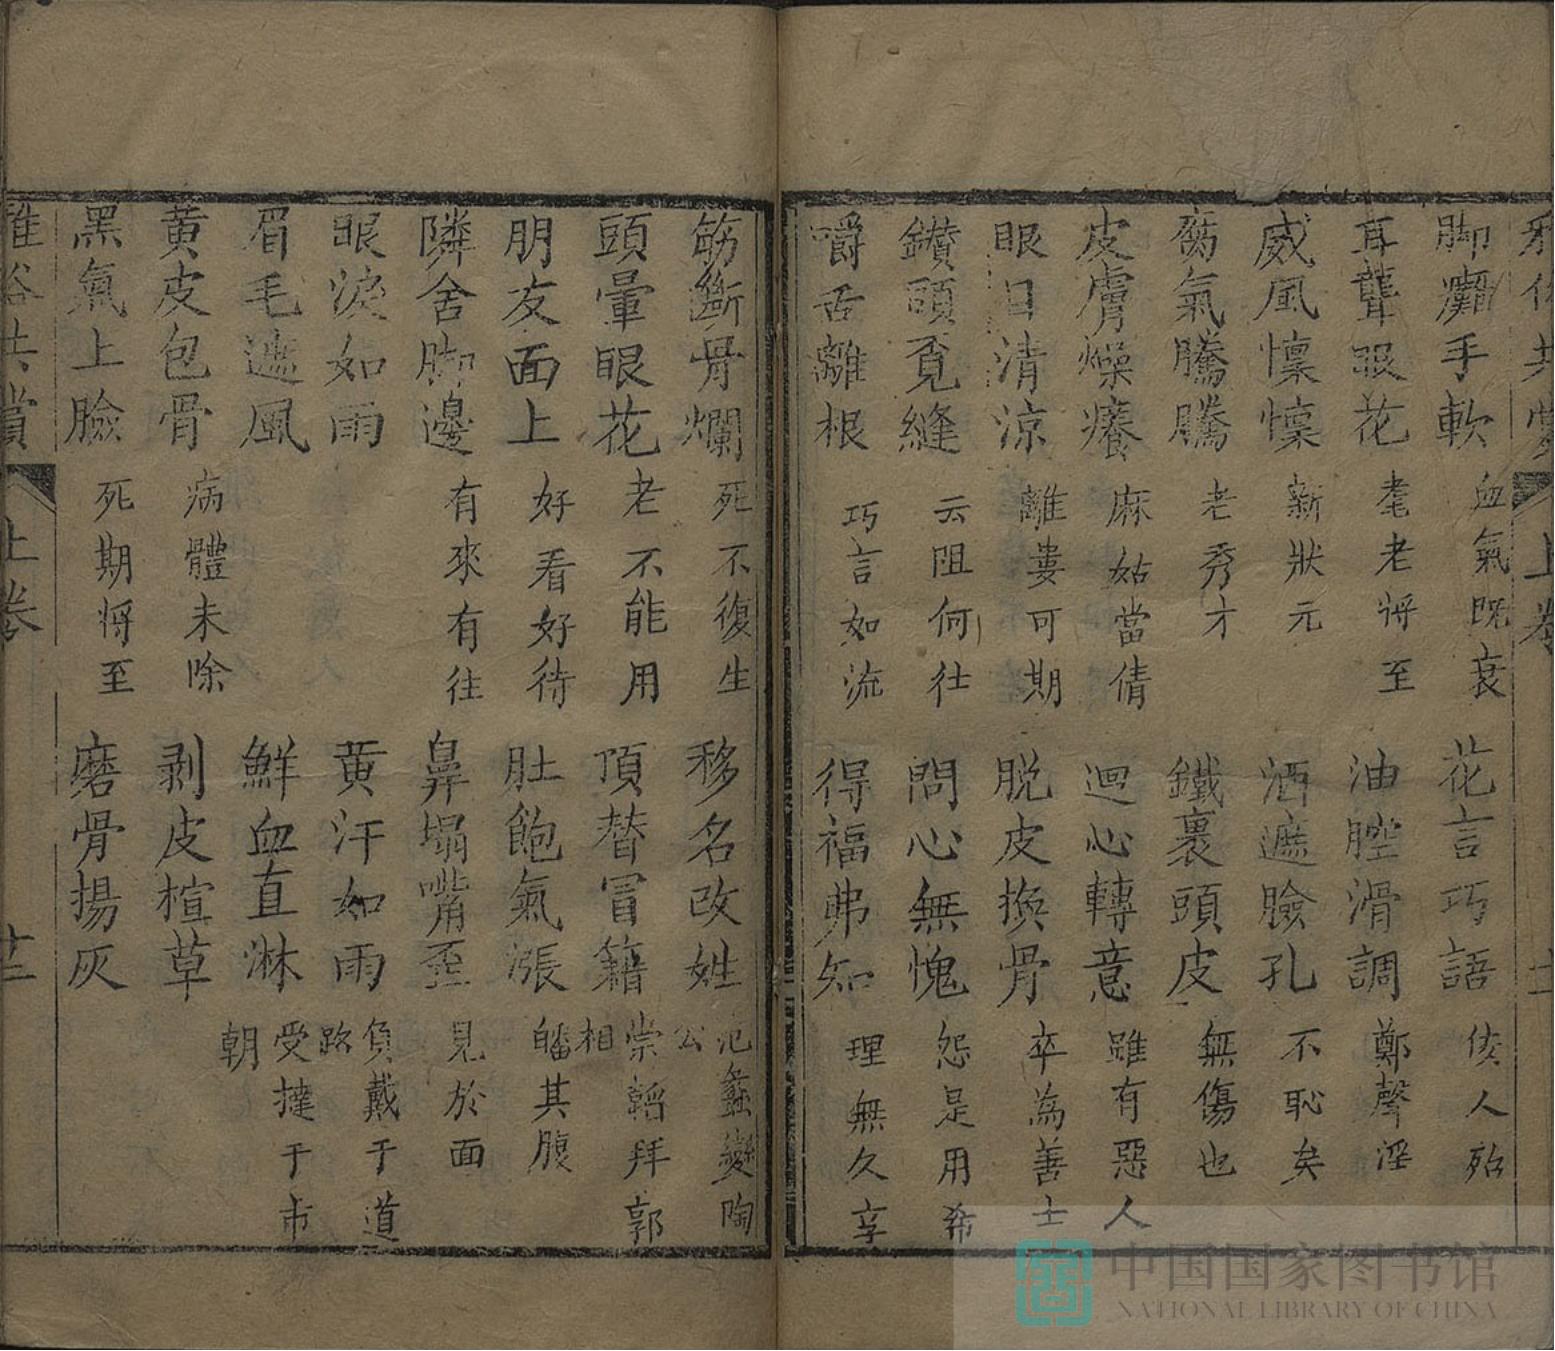 脚癱手軟 血氣既衰 花言巧語 佞人殆
耳聾眼花 耄老将至 油腔滑調 鄭聲淫
威風懍懍 新狀元 洒遮臉孔 不恥矣
腐氣騰騰 老秀才 鐵裹頭皮 無傷也
皮膚燥癢 麻姑當倩 迴心轉意 雖有惡人
眼目清涼 離婁可期 脱皮換骨 卒為善士
鑚頭覓縫 云阻何徃 問心無愧 怨是用希
嚼舌離根 巧言如流 得福弗知 理無久享
筋斷骨爛 死不復生 移名改姓 范蠡變陶公
頭暈眼花 老不能用 頂替冒籍 崇韜拜郭相
朋友面上 好看好待 肚飽氣漲 皤其腹
隣舍脚邊 有來有往 鼻塌嘴歪 見於面
眼淚如雨 黄汗如雨 負戴于道路
眉毛遮風 鮮血直淋 受撻于市朝
黄皮包骨 病體未除 剥皮楦草
黑氣上臉 死期将至 磨骨揚灰
雅俗共賞 上卷 廿二
中国国家图书馆
NATIONAL LIBRARY OF CHINA